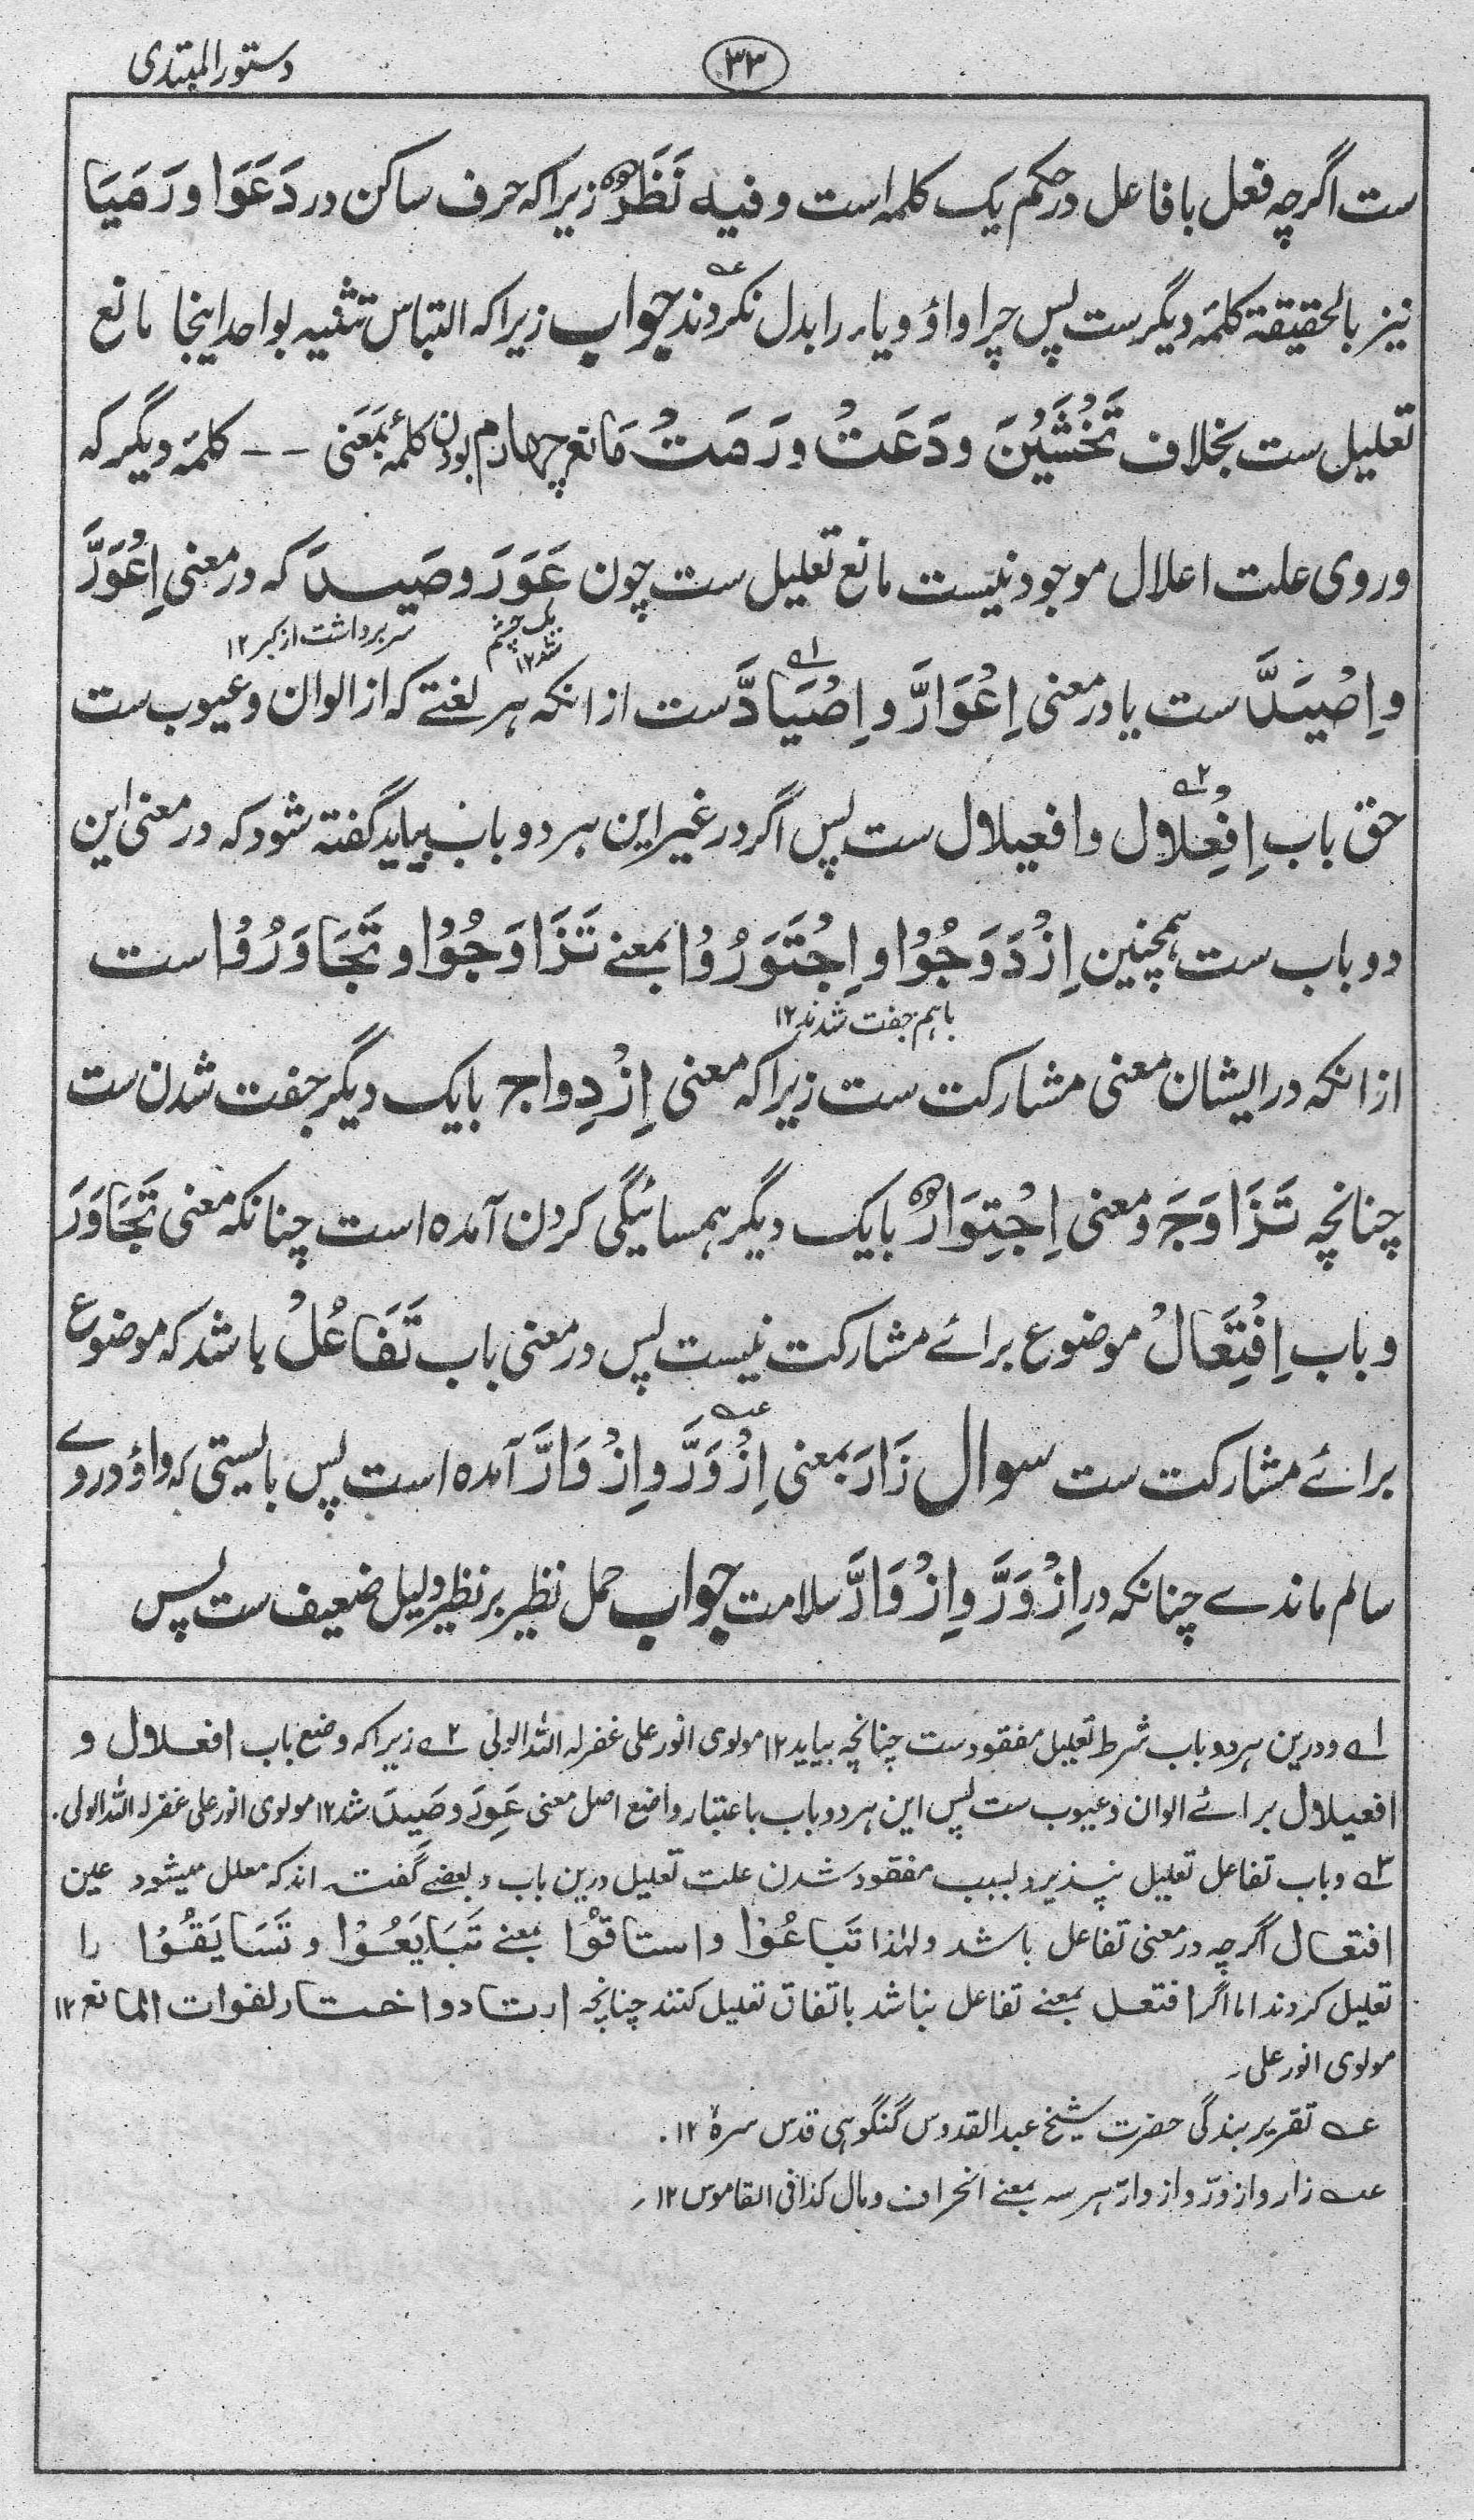 دستور المبتدی
۳۳
ست اگرچہ فعل با فاعل در حکم یک کلمہ است و فیہ نَظَرٌ زیرا کہ حرف ساکن در دَعَوَا و رَمَیَا
نیز بالحقیقۃ کلمۂ دیگر ست پس چرا واؤ و یاء را بدل نکردند جواب زیرا کہ التباس تثنیہ بواحد اینجا مانع
تعلیل ست بخلاف تَخْشَیُنَ و دَعَتْ و رَمَتْ مَانع چہارم بودن کلمۂ بمَعنی -- کلمۂ دیگر کہ
در وی علت اعلال موجود نیست مانع تعلیل ست چون عَوَرَ و صَیَدَ کہ در معنی اِعْوَرَّ
یک چشم شد ۱۲
سر برداشت از کبر ۱۲
و اِصْیَدَّ ست یا در معنی اِعْوَارَّ و اِصْیَادَّ ست از انکہ ہر لغتے کہ از الوان و عیوب ست
حق باب اِفْعِلَال و افعیلال ست پس اگر در غیر این ہر دو باب بیاید گفتہ شود کہ در معنی این
دو باب ست ہمچنین اِزْدَوَجُوْا و اِجْتَوَرُوْا بمعنے تَزَاوَجُوْا و تَجَاوَرُوْا است
باہم جفت شدند ۱۲
از انکہ در ایشان معنی مشارکت ست زیرا کہ معنی اِزْدِواج بایک دیگر جفت شدن ست
چنانچہ تَزَاوَجَ و معنی اِجْتِوَارٌ بایک دیگر ہمسائیگی کردن آمدہ است چنانکہ معنی تَجَاوَرَ
و باب اِفْتِعَالْ موضوع برائے مشارکت نیست پس در معنی باب تَفَاعُلْ باشد کہ موضوع
برائے مشارکت ست سوال زَارَ بمعنی اِزْوَرَّ و اِزْوَارَّ آمدہ است پس بالیستی کہ واؤ در وے
سالم ماندے چنانکہ در اِزْوَرَّ و اِزْوَارَّ سلامت جواب حمل نظیر بر نظیر دلیل ضعیف ست پس
۱ے و درین ہر دو باب شرط تعلیل مفقودست چنانچہ بیاید ۱۲ مولوی انور علی غفر لہ اللہ الولی ۲ے زیرا کہ وضع باب افعلال و
افعیلال برائے الوان و عیوب ست پس این ہر دو باب باعتبار واضع اصل معنی عَوِرَ و صَیِدَ شد ۱۲ مولوی انور علی غفر لہ اللہ الولی.
۳ے و باب تفاعل تعلیل نپذیرد بسبب مفقود شدن علت تعلیل درین باب و بعضے گفتہ اند کہ معلل میشود عین
افتعال اگرچہ در معنی تفاعل باشد و لہذا تَبَاعُوْا و استاقُوْا بمعنے تَبَایَعُوْا و تَسَایَقُوْا را
تعلیل کردند اما اگر افتعل بمعنے تفاعل نباشد باتفاق تعلیل کنند چنانچہ ارتاد و اختار لفوات المانع ۱۲
مولوی انور علی۔
عہ تقریر بندگی حضرت شیخ عبد القدوس گنگوہی قدس سرہٗ ۱۲.
عہ زار و ازورّ و ازوارّ ہر سہ بمعنے انحراف و مال کذا فی القاموس ۱۲۔